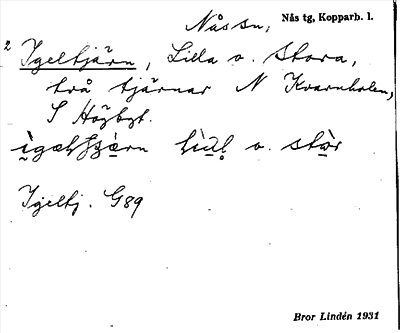 Nås sn, Nås tg, Kopparb. l.
2 Igeltjärn, Lilla o. Stora,
två tjärnar N Kvarnholen,
S Högbgt.
o. stòr
Igeltj. G89
Bror Lindén 1931